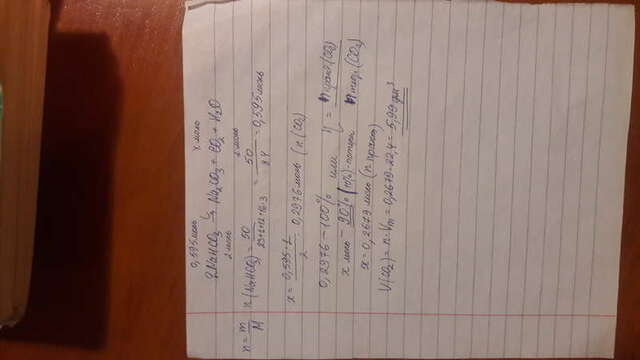 0,595 моль x моль
2NaHCO₃ →ᵗ Na₂CO₃ + CO₂ + H₂O
2 моль 1 моль
n = m/M n(NaHCO₃) = 50/(23+1+12+16·3) = 50/84 = 0,595 моль
x = 0,595·1/2 = 0,2976 моль (n(CO₂)
0,2976 – 100% или η = n практ.(CO₂)/n теор.(CO₂)
x моль – 90% (η%)-потери
x = 0,2679 моль (n практ)
V(CO₂) = n·Vm = 0,2679·22,4 = 5,99 дм³